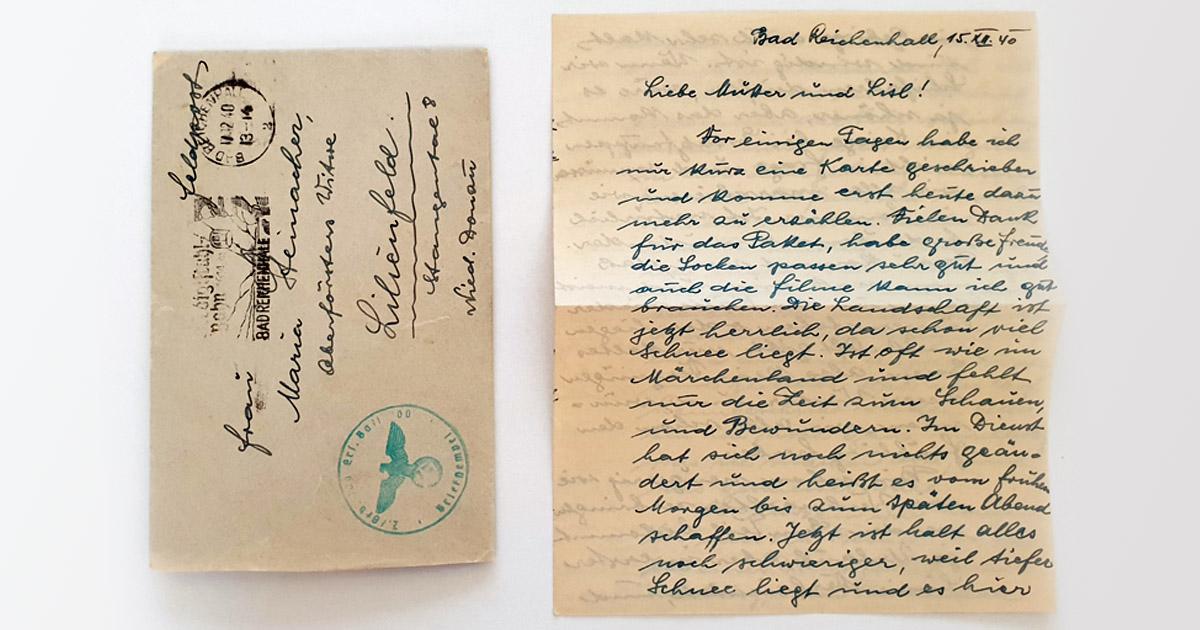 Feldpost
BAD REICHENHALL
12.40
13-14
BAD REICHENHALL
Frau
Maria Heimacher,
Oberförsters Witwe
Lilienfeld.
8
Nied. Donau
Briefstempel
Bad Reichenhall, 15.XII.40
Liebe Mutter und Lisl!
Vor einigen Tagen habe ich
nur kurz eine Karte geschrieben
und komme erst heute dazu
mehr zu erzählen. Vielen Dank
für das Paket, habe große Freude
die Socken passen sehr gut und
auch die Filme kann ich gut
brauchen. Die Landschaft ist
jetzt herrlich, da schon viel
Schnee liegt. Ist oft wie im
Märchenland und fehlt
nur die Zeit zum Schauen,
und Bewundern. Im Dienst
hat sich noch nichts geän-
dert und heißt es vom frühen
Morgen bis zum späten Abend
schaffen. Jetzt ist halt alles
noch schwieriger, weil tiefer
Schnee liegt und es hier